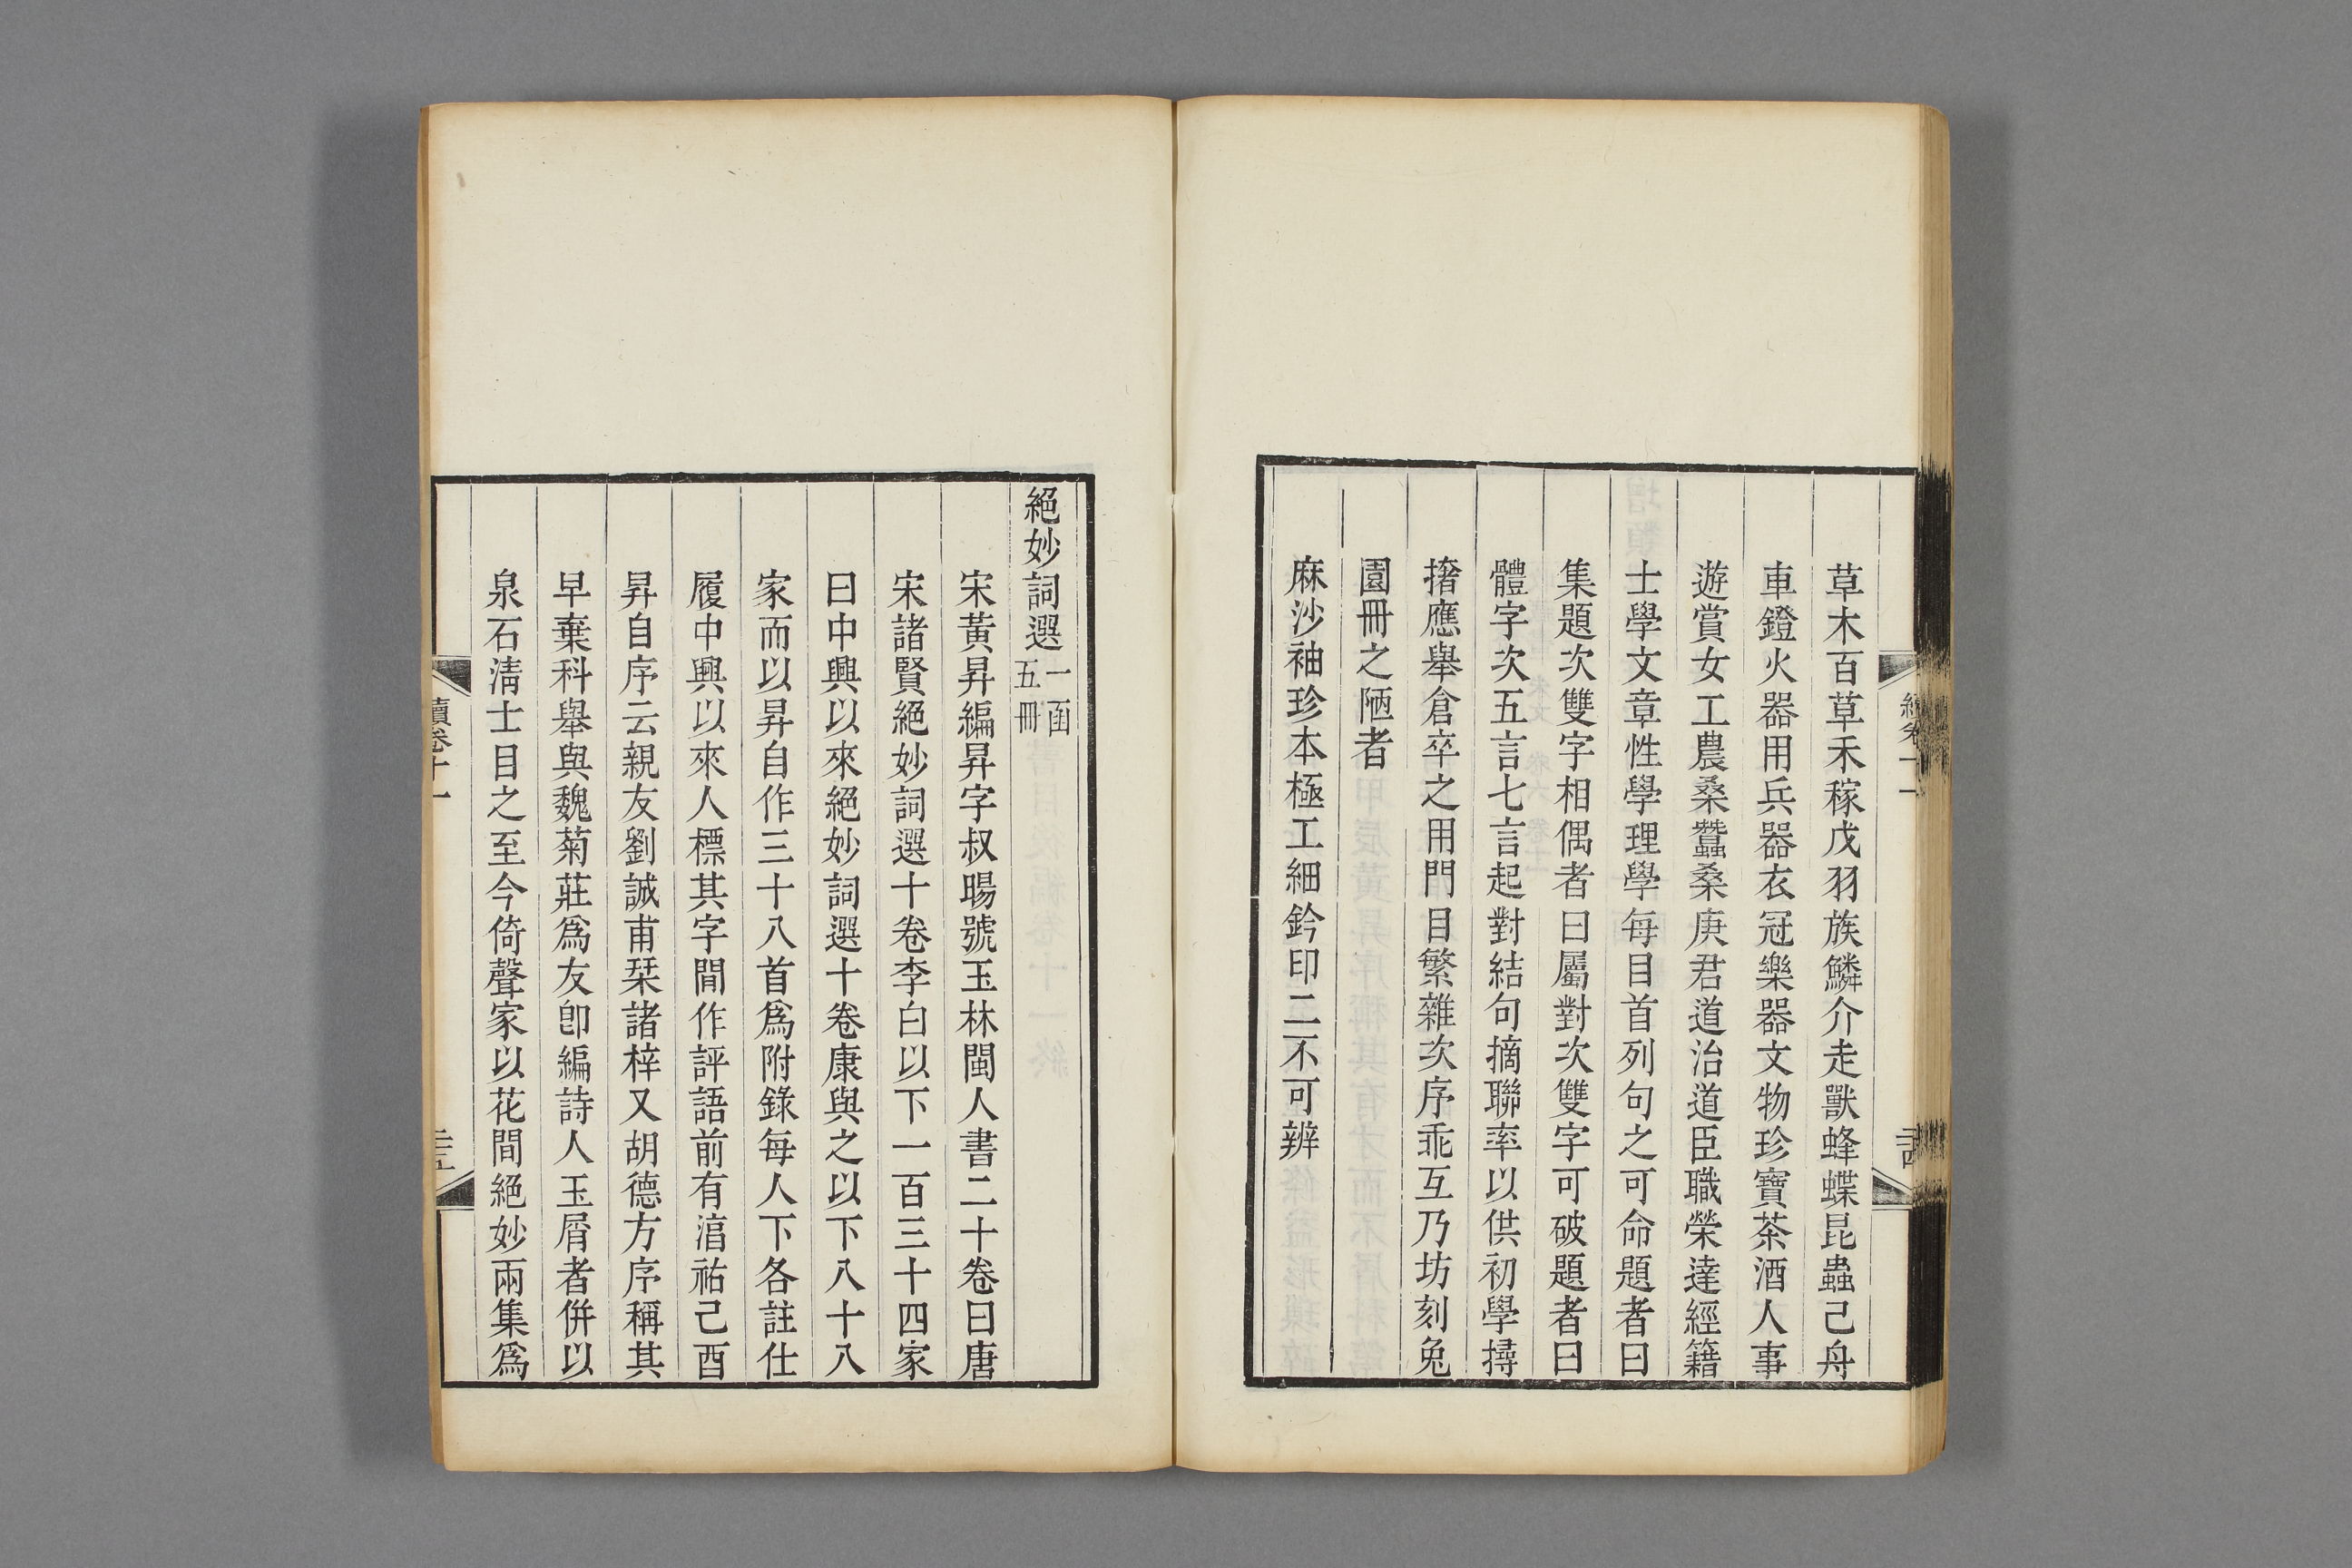 草木百草禾稼戊羽族鱗介走獸蜂蝶昆蟲己舟
車鐙火器用兵器衣冠樂器文物珍寶茶酒人事
遊賞女工農桑蠶桑庚君道治道臣職榮達經籍
士學文章性學理學每目首列句之可命題者曰
集題次雙字相偶者曰屬對次雙字可破題者曰
體字次五言七言起對結句摘聯率以供初學撏
撦應舉倉卒之用門目繁雜次序乖互乃坊刻兔
園冊之陋者
麻沙袖珍本極工細鈐印二不可辨
絕妙詞選一函五冊
宋黃昇編昇字叔暘號玉林閩人書二十卷曰唐
宋諸賢絕妙詞選十卷李白以下一百三十四家
曰中興以來絕妙詞選十卷康與之以下八十八
家而以昇自作三十八首爲附錄每人下各註仕
履中興以來人標其字間作評語前有淯祐己酉
昇自序云親友劉誠甫栞諸梓又胡德方序稱其
早棄科舉與魏菊莊爲友卽編詩人玉屑者併以
泉石淸士目之至今倚聲家以花間絕妙兩集爲
續卷十一